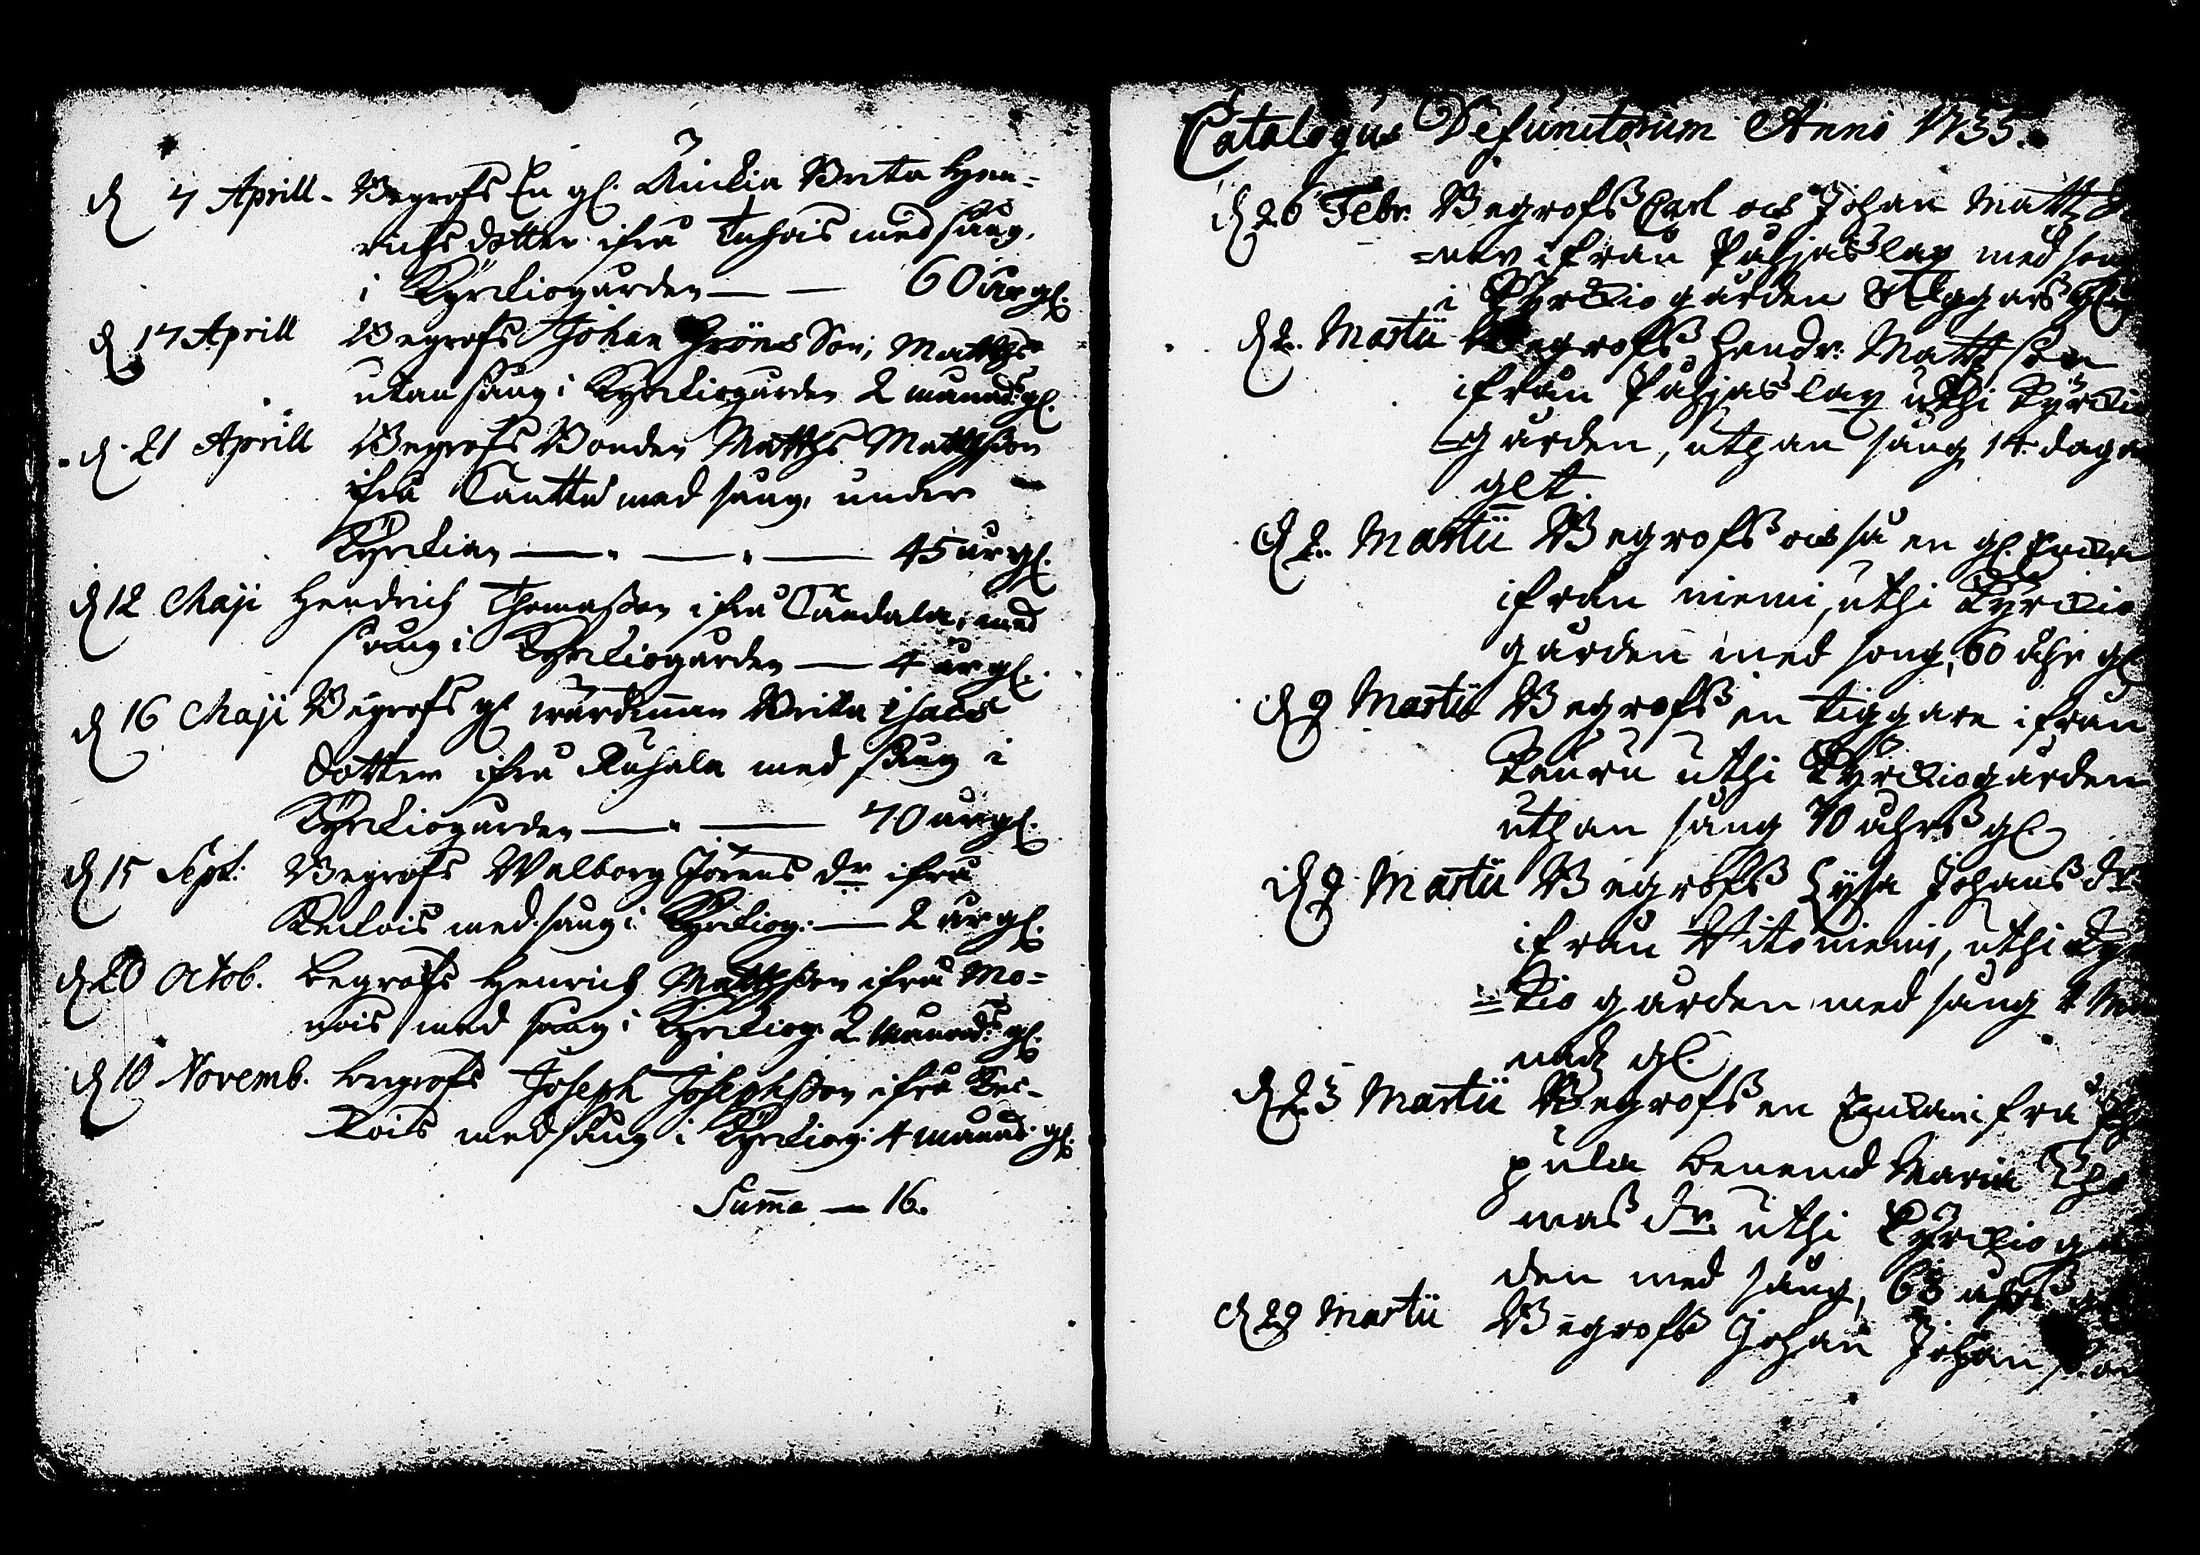 d 7 Aprill. Begrofs En gl. Änckia Brita Hen-
richsdotter ifrå Tuhois med sång.
i Kyrckiogården — — 60 åhr gl.
d. 17 Aprill Begrofs Johan Gröns Son, Matths
utan sång i Kyrckiogården 2 månad gl.
d. 21 Aprill Begrofs Bonden Matths Matthsson
ifrå Cauttu med sång. under
Kyrckian — — — 45 år gl.
d 12 Maji Hendrich Thomasson ifrå Caudala, med
sång i Kyrckiogården — 4 år gl.
d 16 Maji Begrofs gl Brita Isacs
dotter ifrå Ruhala med sång i
Kyrckiogården — — 70 år gl.
d 15 Sept: Begrofs Walborg Jörens dr ifrå
med sång i Kyrckiog: — 2 år gl.
d 20 Octob. Begrofs Henrich Matthsson ifrå Mo-
nois med sång i Kyrckiog. 2 månad: gl.
d 10 Novemb. begrofs Joseph Josephsson ifrå Kec-
kois med sång i Kyrckiog: 4 månad: gl.
Summa — 16.
Catalogus Defunctorum Anno 1735.
d 26 Febr. Begrofs Carl och Johan Matts
ifrån Puhjaslax med song
i Kyrckio gården
d 2. Martii Begrofs Hendr. Mattsson
ifrån Puhjaslax uthi Kyrckio
=gården, uthan sång 14 dagar
glt.
d 2. Martii Begrofs och så en gl. Encka
ifrån niemi, uthi Kyrckio
gården med song, 60 åhr gl
d 9 Martii Begrofs en tiggare ifrån
Kauru uthi Kyrckiogården
uthan sång 70 åhrs gl
d 9 Martii Begrofs Lysa Johans dr
ifrån Vitoniemi, uthi Kyr
=kio gården med sång 2 Må
nadz gl.
d 23 Martii Begrofs en Enckia ifrå
pula benemd Maria Tho
mas dr uthi Kyrckio går
den med sång, 68 åhrs gl
d 29 Martii Begrofs Johan Johansson